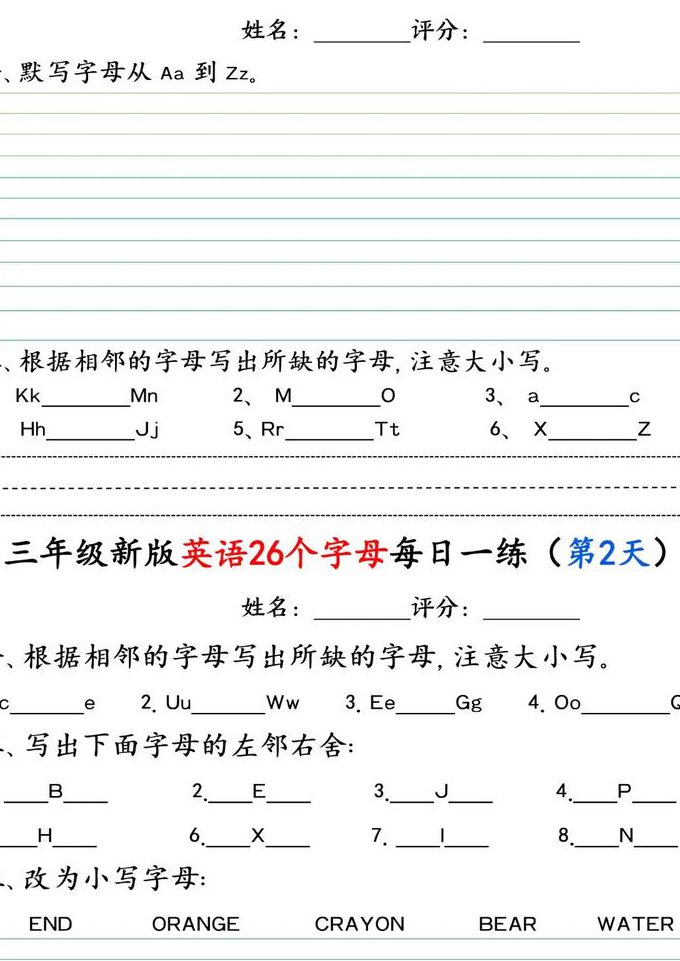 姓名：_______评分：_______
、默写字母从 Aa 到 Zz。
、根据相邻的字母写出所缺的字母,注意大小写。
Kk______Mn 2、 M______O 3、 a______c
Hh______Jj 5、Rr______Tt 6、 X______Z
三年级新版英语26个字母每日一练（第2天）
姓名：_______评分：_______
、根据相邻的字母写出所缺的字母,注意大小写。
c_____e 2. Uu_____Ww 3. Ee____Gg 4. Oo______Q
、写出下面字母的左邻右舍：
___B___ 2.___E___ 3.___J___ 4.___P___
___H___ 6.___X___ 7. ___I___ 8.___N___
、改为小写字母：
END ORANGE CRAYON BEAR WATER